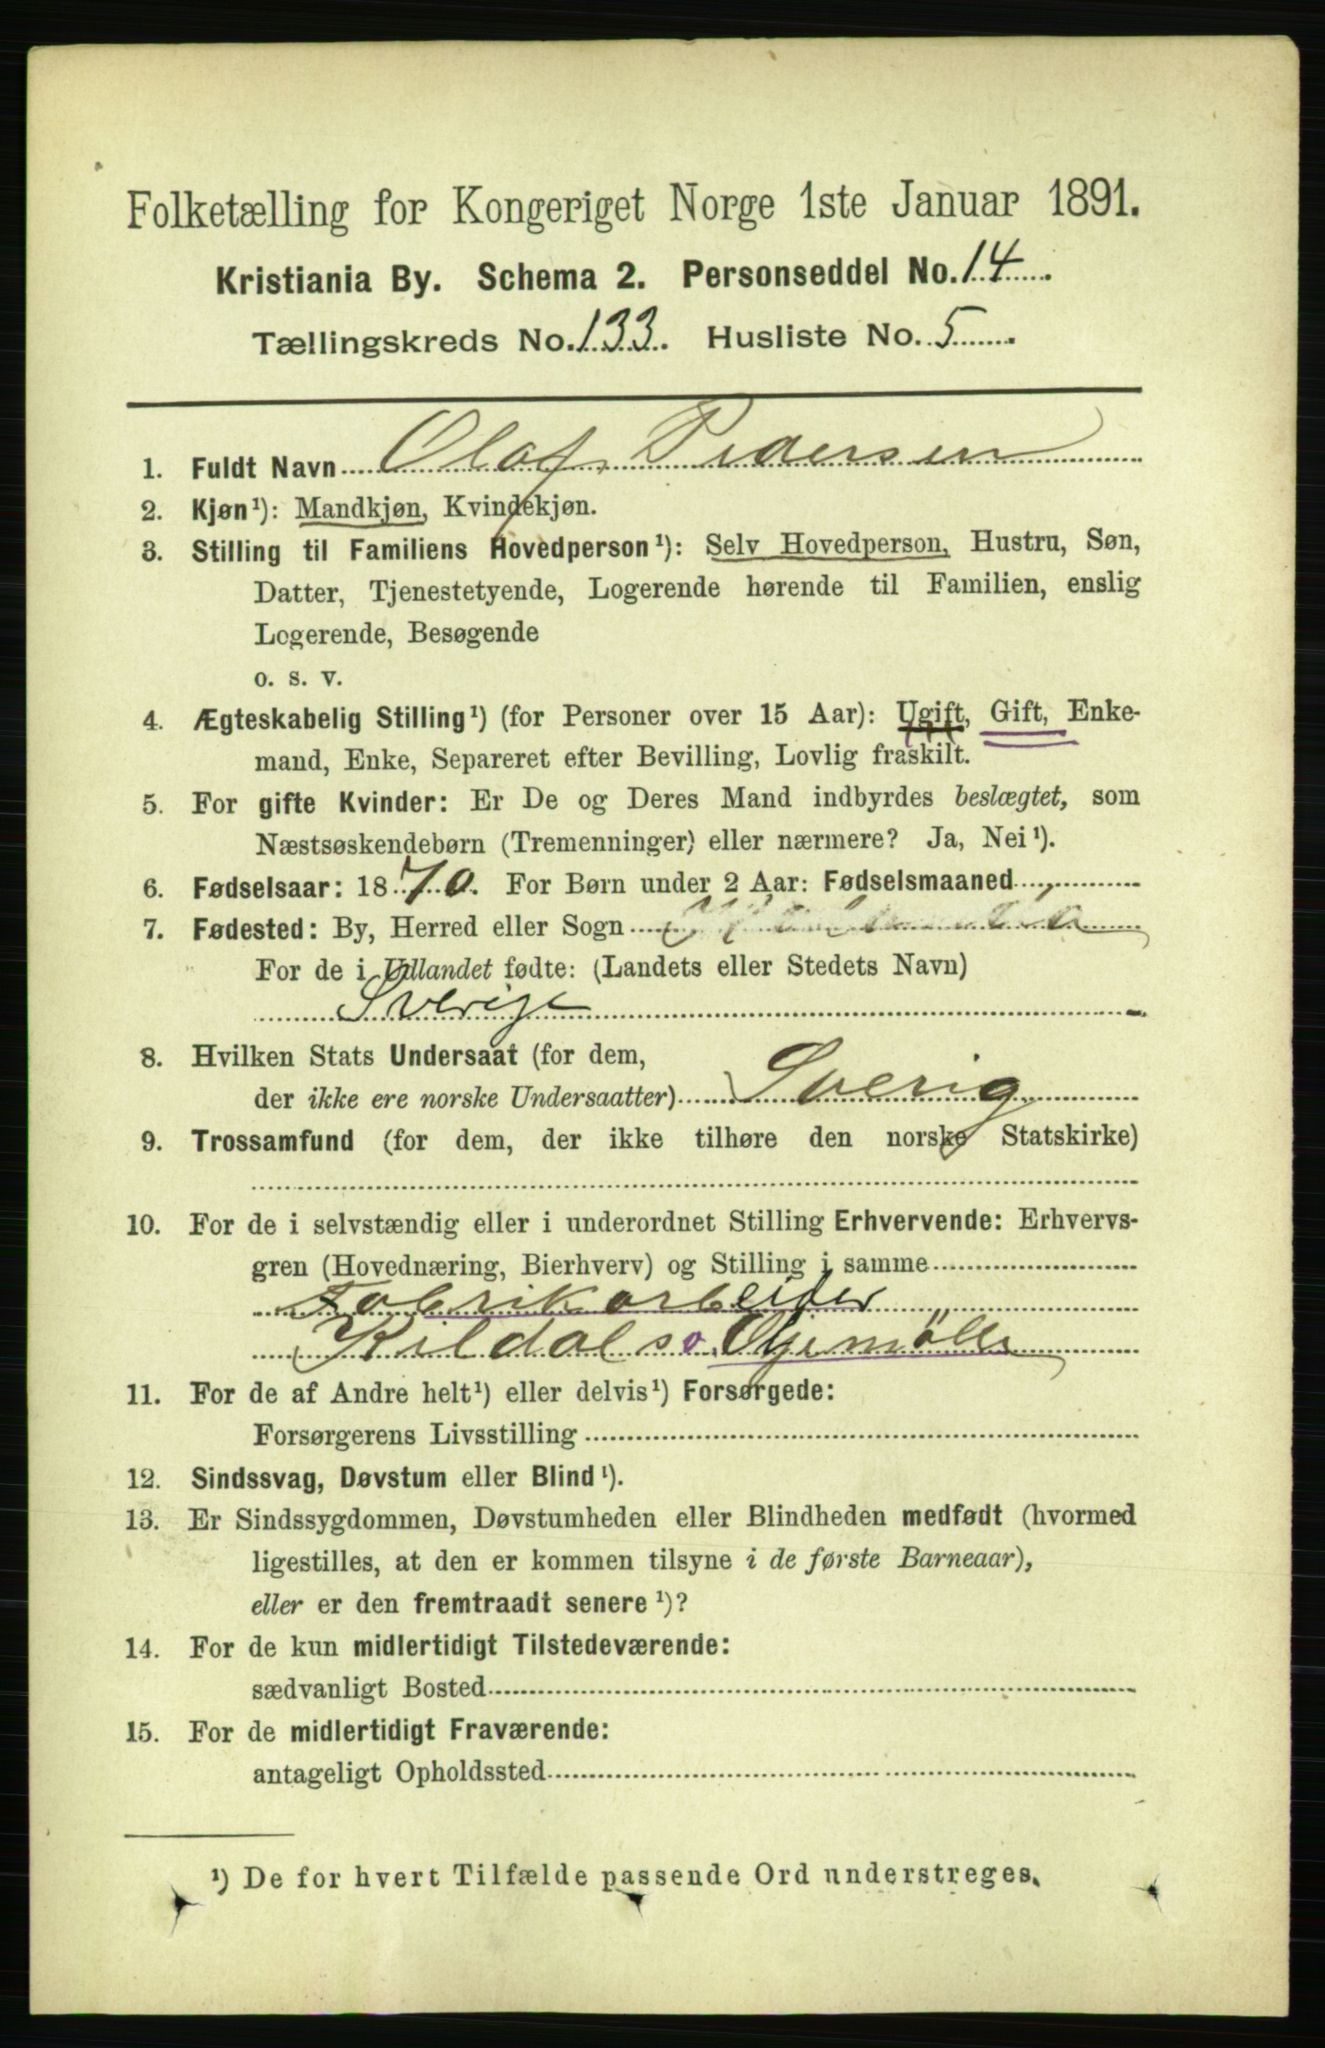 Folketælling for Kongeriget Norge 1ste Januar 1891.
Kristiania By. Schema 2. Personseddel No. 14.
Tællingskreds No. 133. Husliste No. 5.
1. Fuldt Navn Olaf Pedersen
2. Kjøn¹): Mandkjøn, Kvindekjøn.
3. Stilling til Familiens Hovedperson¹): Selv Hovedperson, Hustru, Søn,
Datter, Tjenestetyende, Logerende hørende til Familien, enslig
Logerende, Besøgende
o. s. v.
4. Ægteskabelig Stilling¹) (for Personer over 15 Aar): Ugift, Gift, Enke-
mand, Enke, Separeret efter Bevilling, Lovlig fraskilt.
5. For gifte Kvinder: Er De og Deres Mand indbyrdes beslægtet, som
Næstsøskendebørn (Tremenninger) eller nærmere? Ja, Nei¹).
6. Fødselsaar: 1870. For Børn under 2 Aar: Fødselsmaaned
7. Fødested: By, Herred eller Sogn
For de i Udlandet fødte: (Landets eller Stedets Navn)
Sverige
8. Hvilken Stats Undersaat (for dem,
der ikke ere norske Undersaatter) Sverig
9. Trossamfund (for dem, der ikke tilhøre den norske Statskirke)
10. For de i selvstændig eller i underordnet Stilling Erhvervende: Erhvervs-
gren (Hovednæring, Bierhverv) og Stilling i samme
Fabrikarbeider
Kildals Oljemölle
11. For de af Andre helt¹) eller delvis¹) Forsørgede:
Forsørgerens Livsstilling
12. Sindssvag, Døvstum eller Blind¹).
13. Er Sindssygdommen, Døvstumheden eller Blindheden medfødt (hvormed
ligestilles, at den er kommen tilsyne i de første Barneaar),
eller er den fremtraadt senere¹)?
14. For de kun midlertidigt Tilstedeværende:
sædvanligt Bosted
15. For de midlertidigt Fraværende:
antageligt Opholdssted
¹) De for hvert Tilfælde passende Ord understreges.